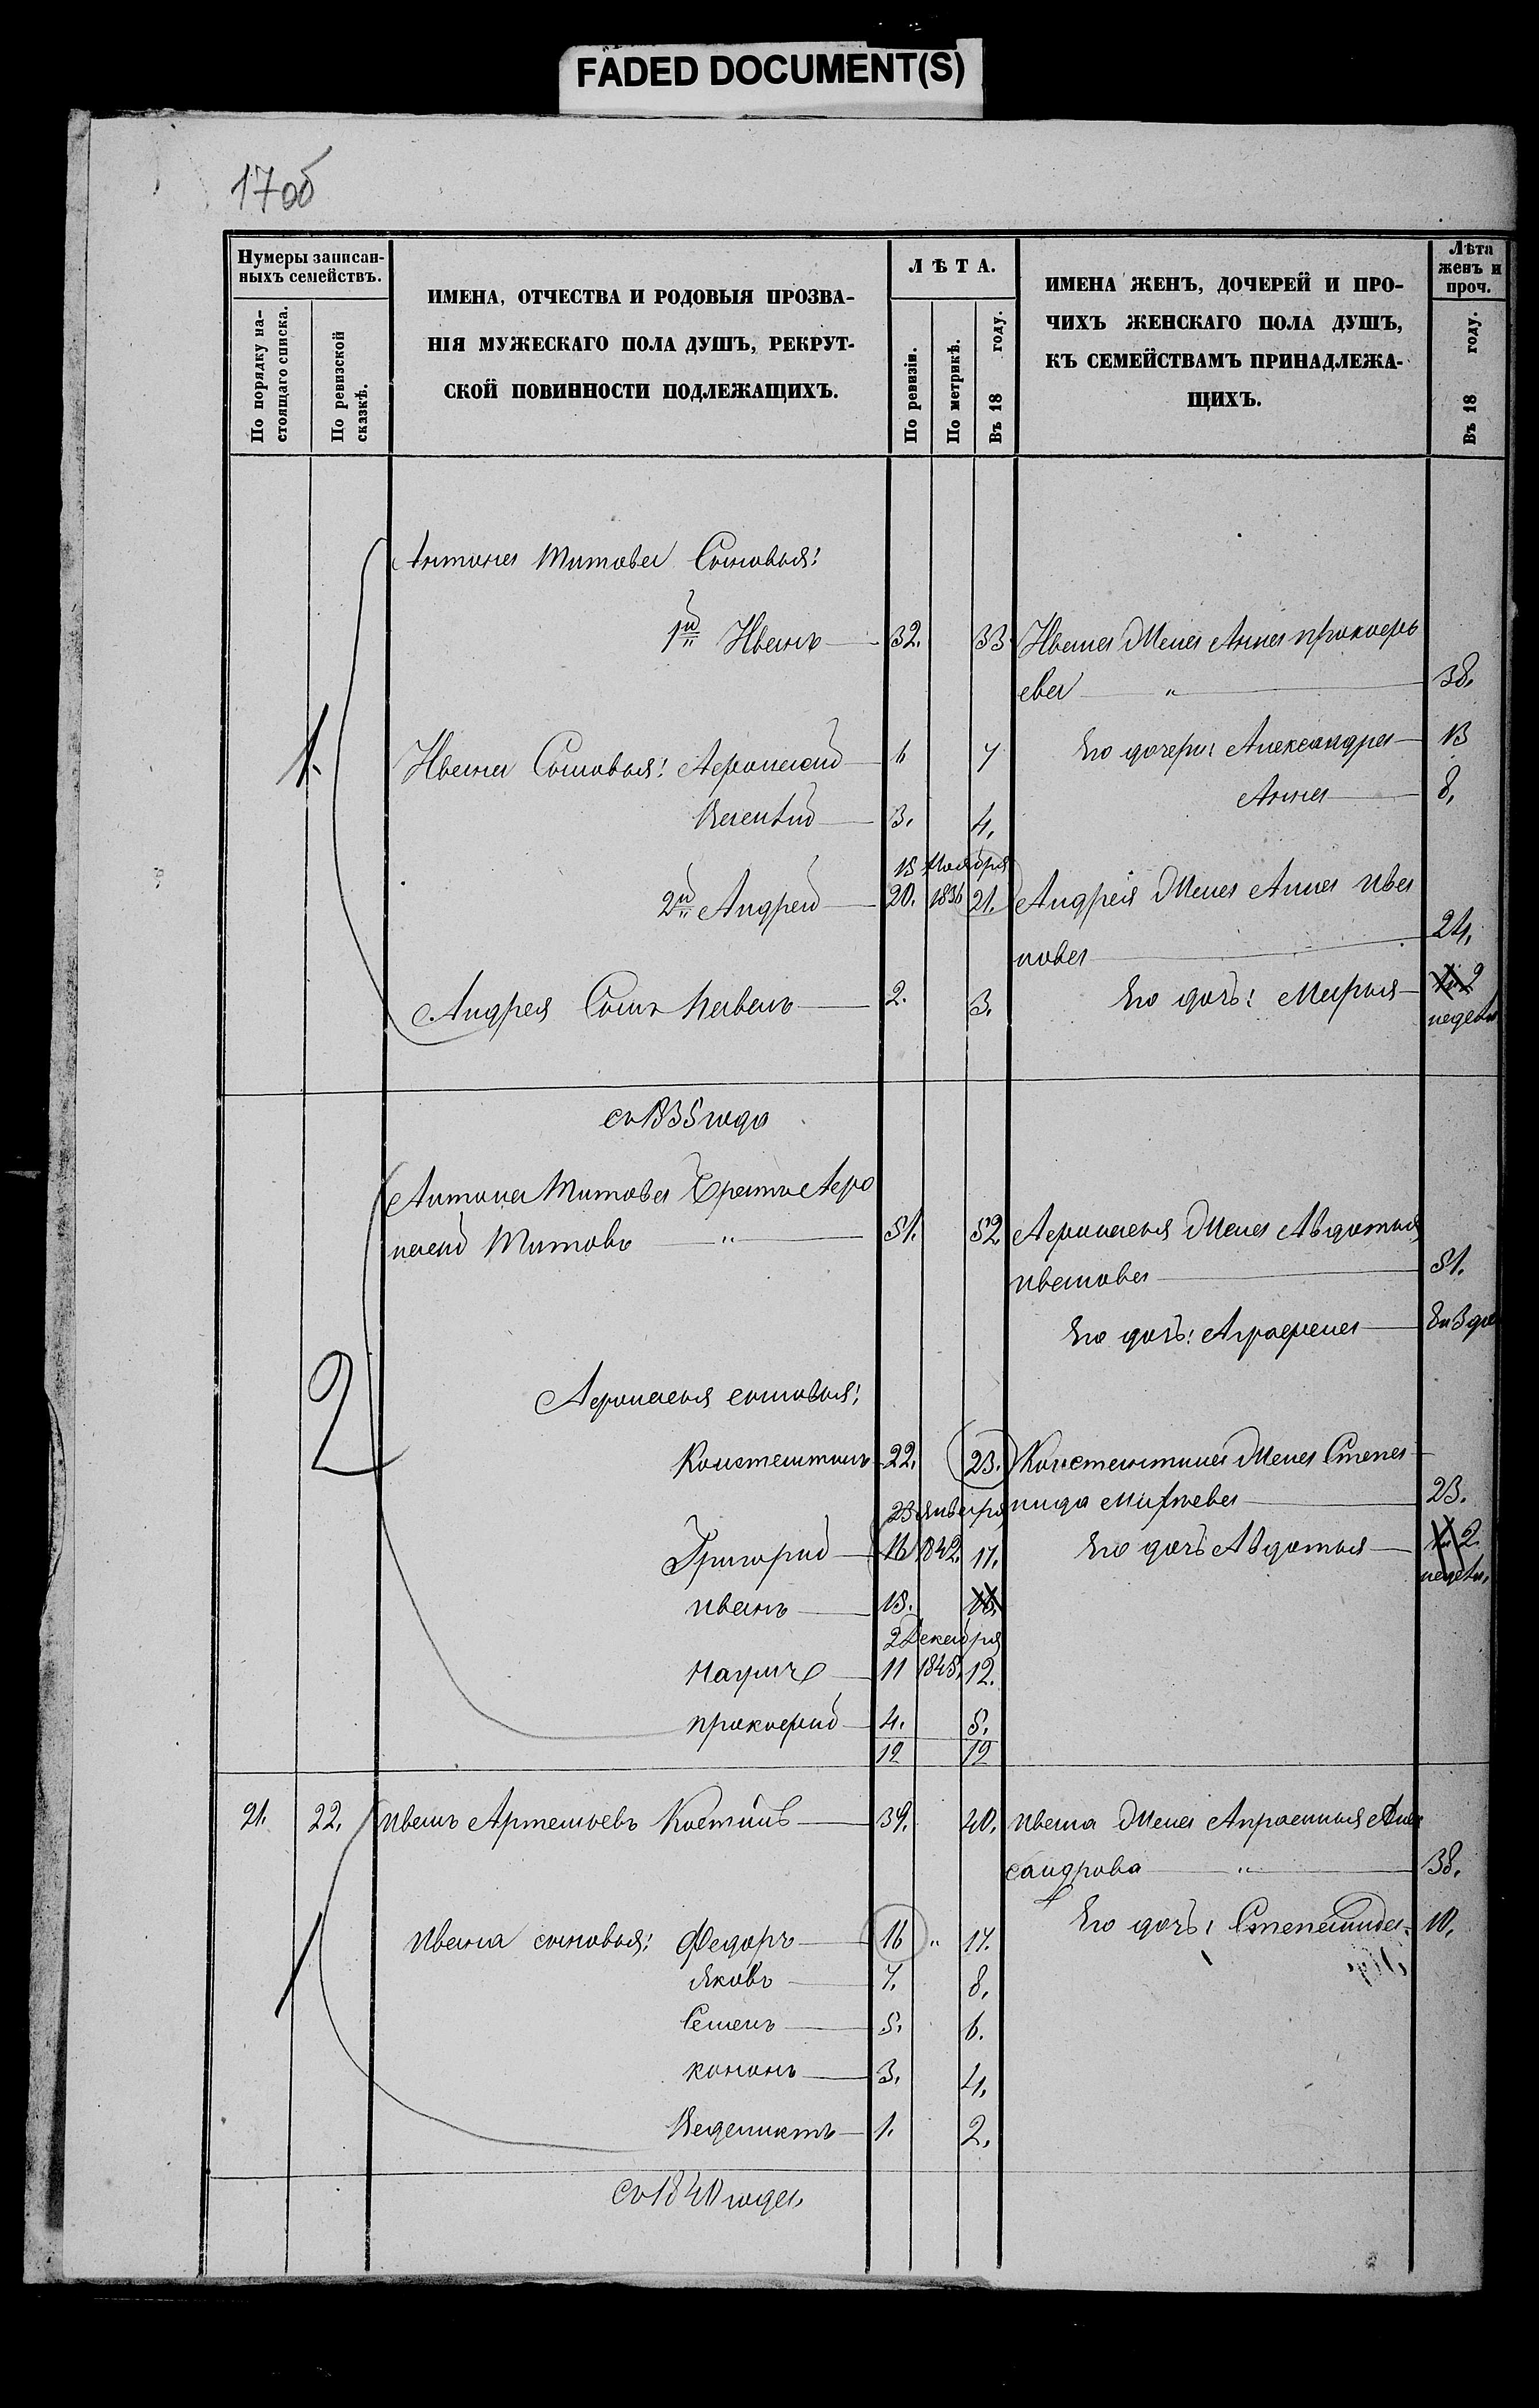 FADED DOCUMENT(S)
17об
Нумеры записан-
ныхъ семействъ.
По порядку на-
стоящаго списка.
По ревизской
сказкѣ.
ИМЕНА, ОТЧЕСТВА И РОДОВЫЯ ПРОЗВА-
НІЯ МУЖЕСКАГО ПОЛА ДУШЪ, РЕКРУТ-
СКОЙ ПОВИННОСТИ ПОДЛЕЖАЩИХЪ.
ЛѢТА.
По ревизіи.
По метрикѣ.
Въ 18 году.
ИМЕНА ЖЕНЪ, ДОЧЕРЕЙ И ПРО-
ЧИХЪ ЖЕНСКАГО ПОЛА ДУШЪ,
КЪ СЕМЕЙСТВАМЪ ПРИНАДЛЕЖА-
ЩИХЪ.
Лѣта
женъ и
проч.
Въ 18 году.
Антона Титова Сыновья:
1й Иванъ 32. 33 Ивана Жена Анна прокофь
ева " 38.
1. Ивана Сыновья: Афонасий 6 7 Его дочери: Александра 13
Анна 8.
3. 4.
15 Ноября
2й Андрей 20. 1836 21. Андрея Жена Анна Ива
нова 24.
Андрея Сынъ Павелъ 2. 3. Его дочь: Марья 2
недели
съ 1835 года
Антона Титова братъ Афо
насий Титовъ " 51. 52 Афонасья Жена Авдотья
ивановa 51.
Его дочь: Аграфена
2
Афонасья сыновья:
Константинъ 22. 23. Константина Жена Степа
нида 23.
23 Января
Григорий 16 1842. 17. Его дочь Авдотья 2
недели
иванъ 15. 16.
2 Декабря
Наумъ 11 1845. 12.
прокофий 4. 5.
12 12
21. 22. иванъ Артемьевъ Костинъ 39. 40. ивана Жена Апросинья Алек
сандрова " 38.
1 Ивана сыновья: Федоръ 16 " 17. Его дочь: Степанида 10.
Яковъ 7. 8.
Семенъ 5. 6.
кононъ 3. 4.
Ведениктъ 1. 2.
съ 1840 года.